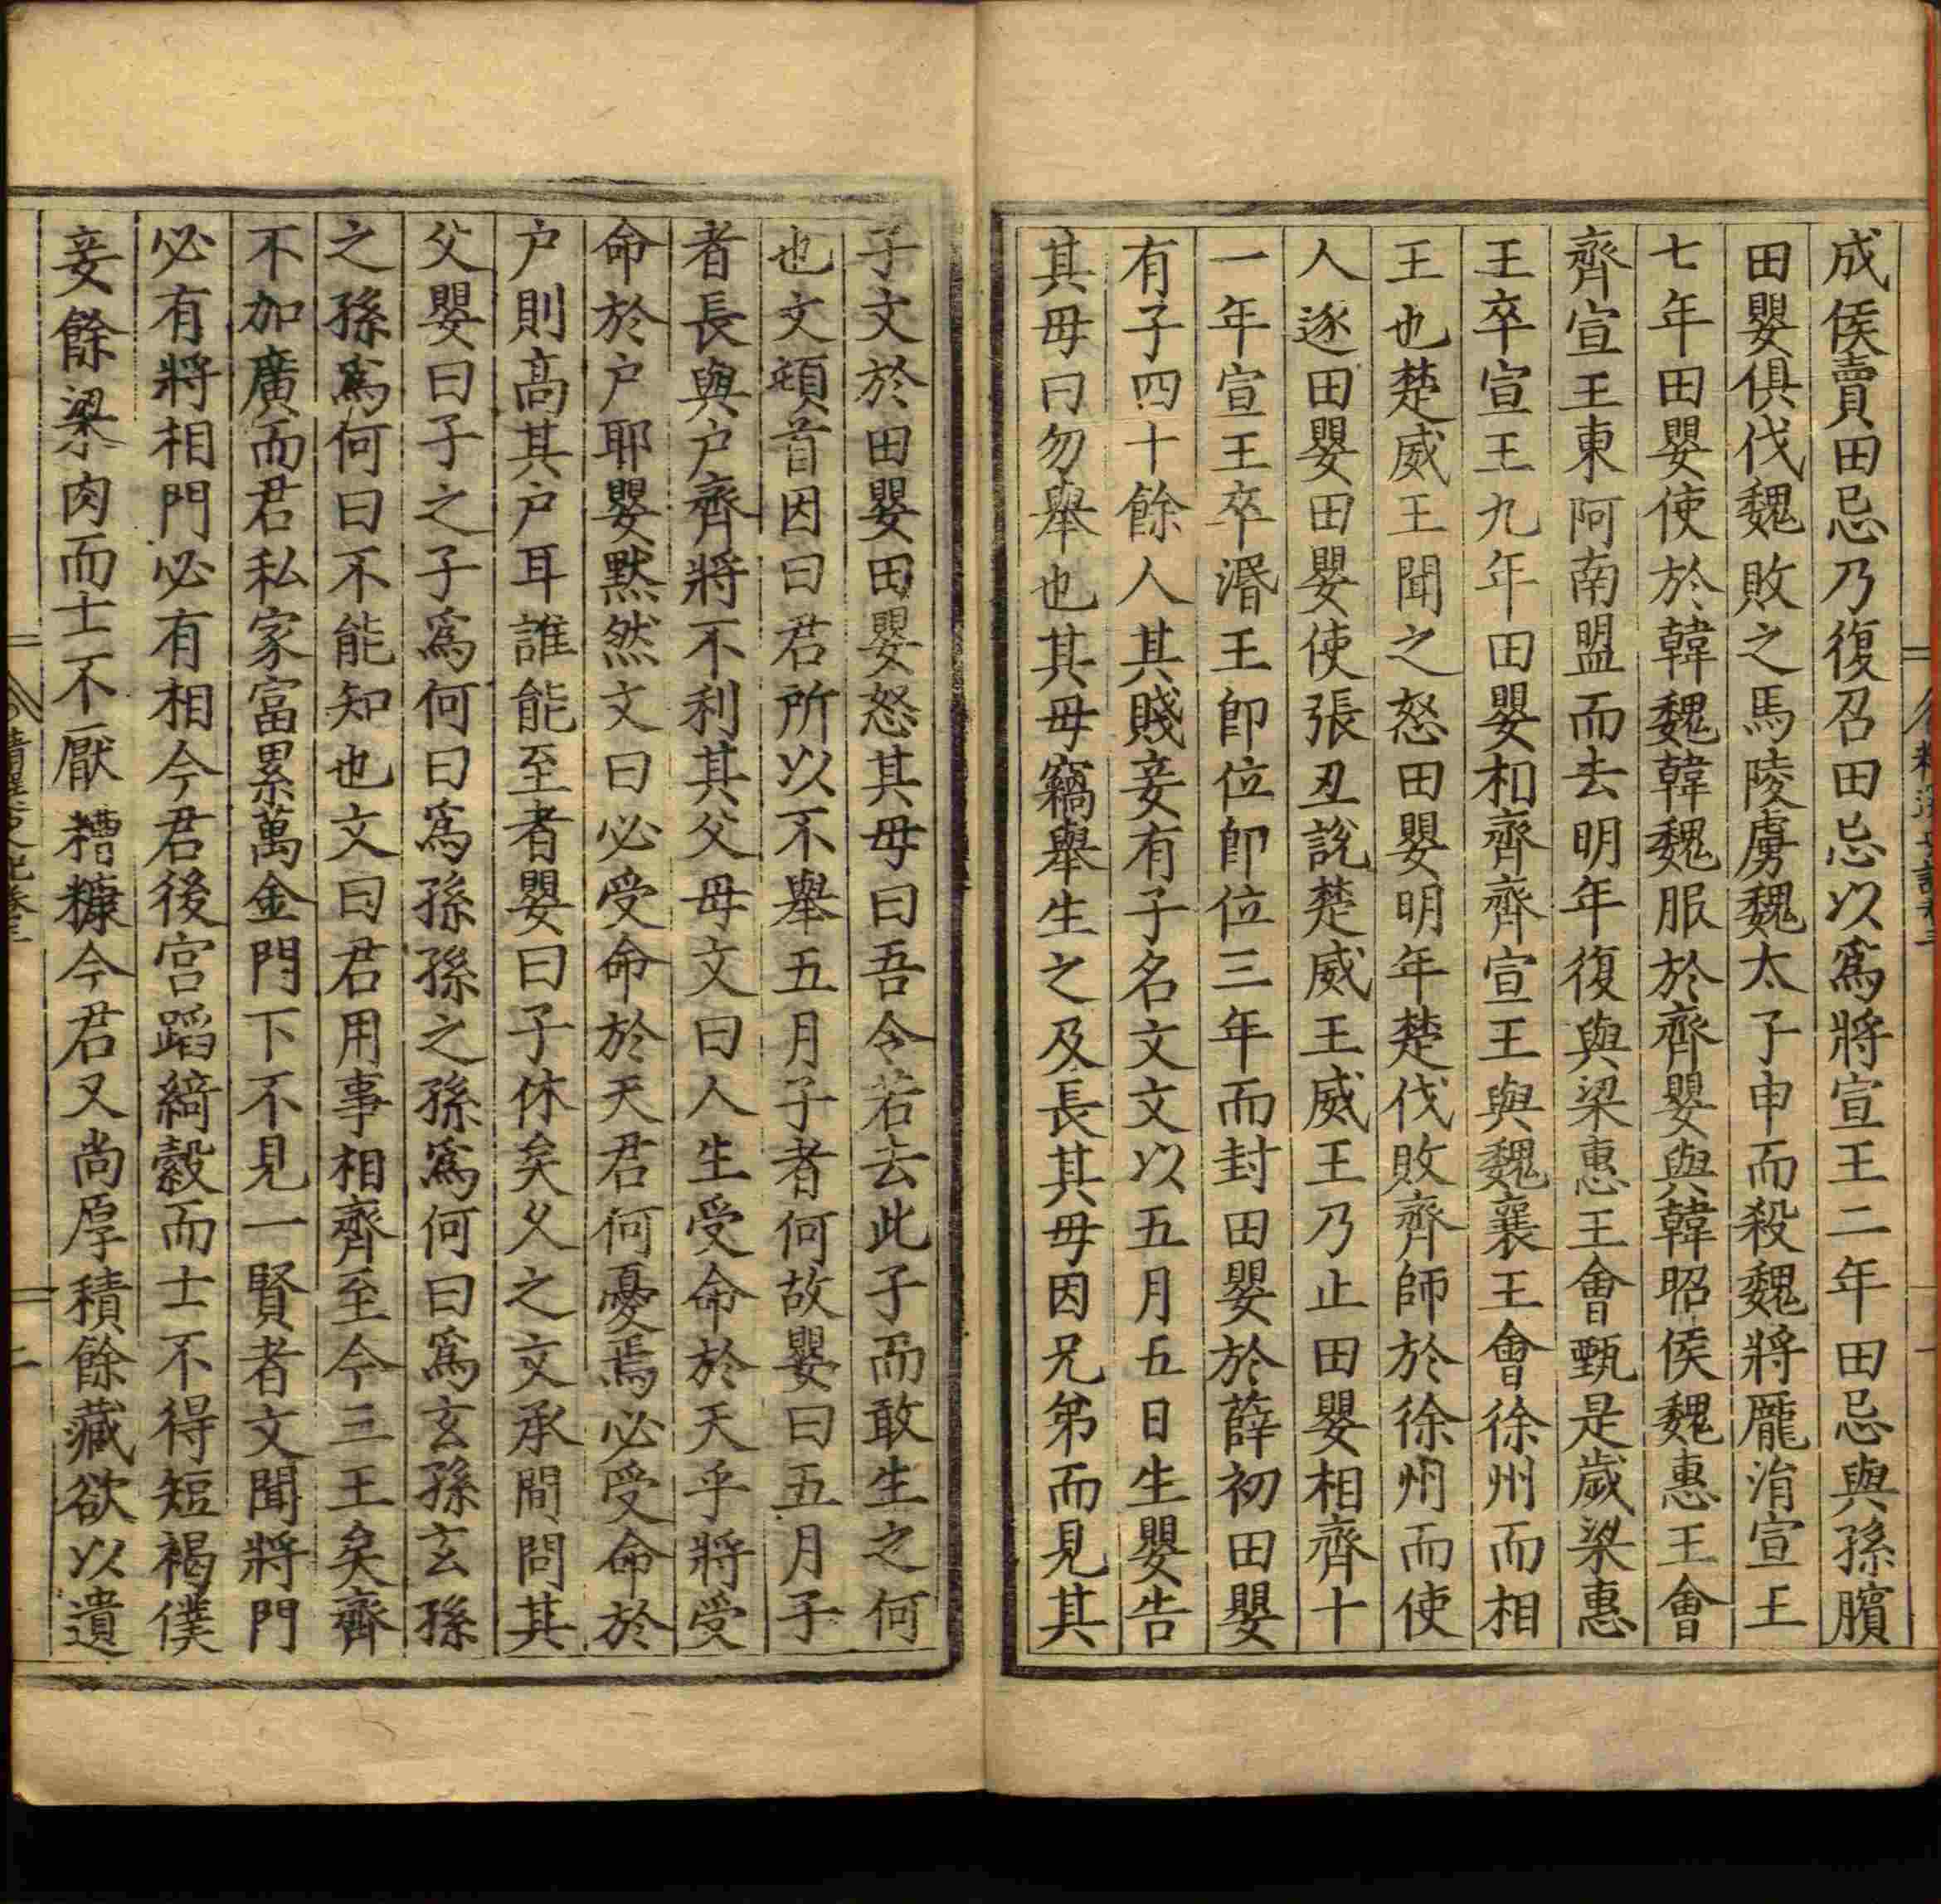 成侯賣田忌乃復召田忌以爲將宣王二年田忌與孫臏
田嬰俱伐魏敗之馬陵虜魏太子申而殺魏將龎涓宣王
七年田嬰使於韓魏韓魏服於齊嬰與韓昭侯魏惠王會
齊宣王東阿南盟而去明年復與梁惠王會甄是歲梁惠
王卒宣王九年田嬰相齊齊宣王與魏襄王會徐州而相
王也楚威王聞之怒田嬰明年楚伐敗齊師於徐州而使
人逐田嬰田嬰使張丑說楚威王威王乃止田嬰相齊十
一年宣王卒湣王卽位卽位三年而封田嬰於薛初田嬰
有子四十餘人其賤妾有子名文文以五月五日生嬰告
其母曰勿舉也其母竊舉生之及長其母因兄弟而見其
子文於田嬰田嬰怒其母曰吾令若去此子而敢生之何
也文頓首因曰君所以不舉五月子者何故嬰曰五月子
者長與户齊將不利其父母文曰人生受命於天乎將受
命於户耶嬰默然文曰必受命於天君何憂焉必受命於
户則高其户耳誰能至者嬰曰子休矣久之文承間問其
父嬰曰子之子爲何曰爲孫孫之孫爲何曰爲玄孫玄孫
之孫爲何曰不能知也文曰君用事相齊至今三王矣齊
不加廣而君私家富累萬金門下不見一賢者文聞將門
必有將相門必有相今君後宫蹈綺縠而士不得短褐僕
妾餘粱肉而士不厭糟糠今君又尚厚積餘藏欲以遺